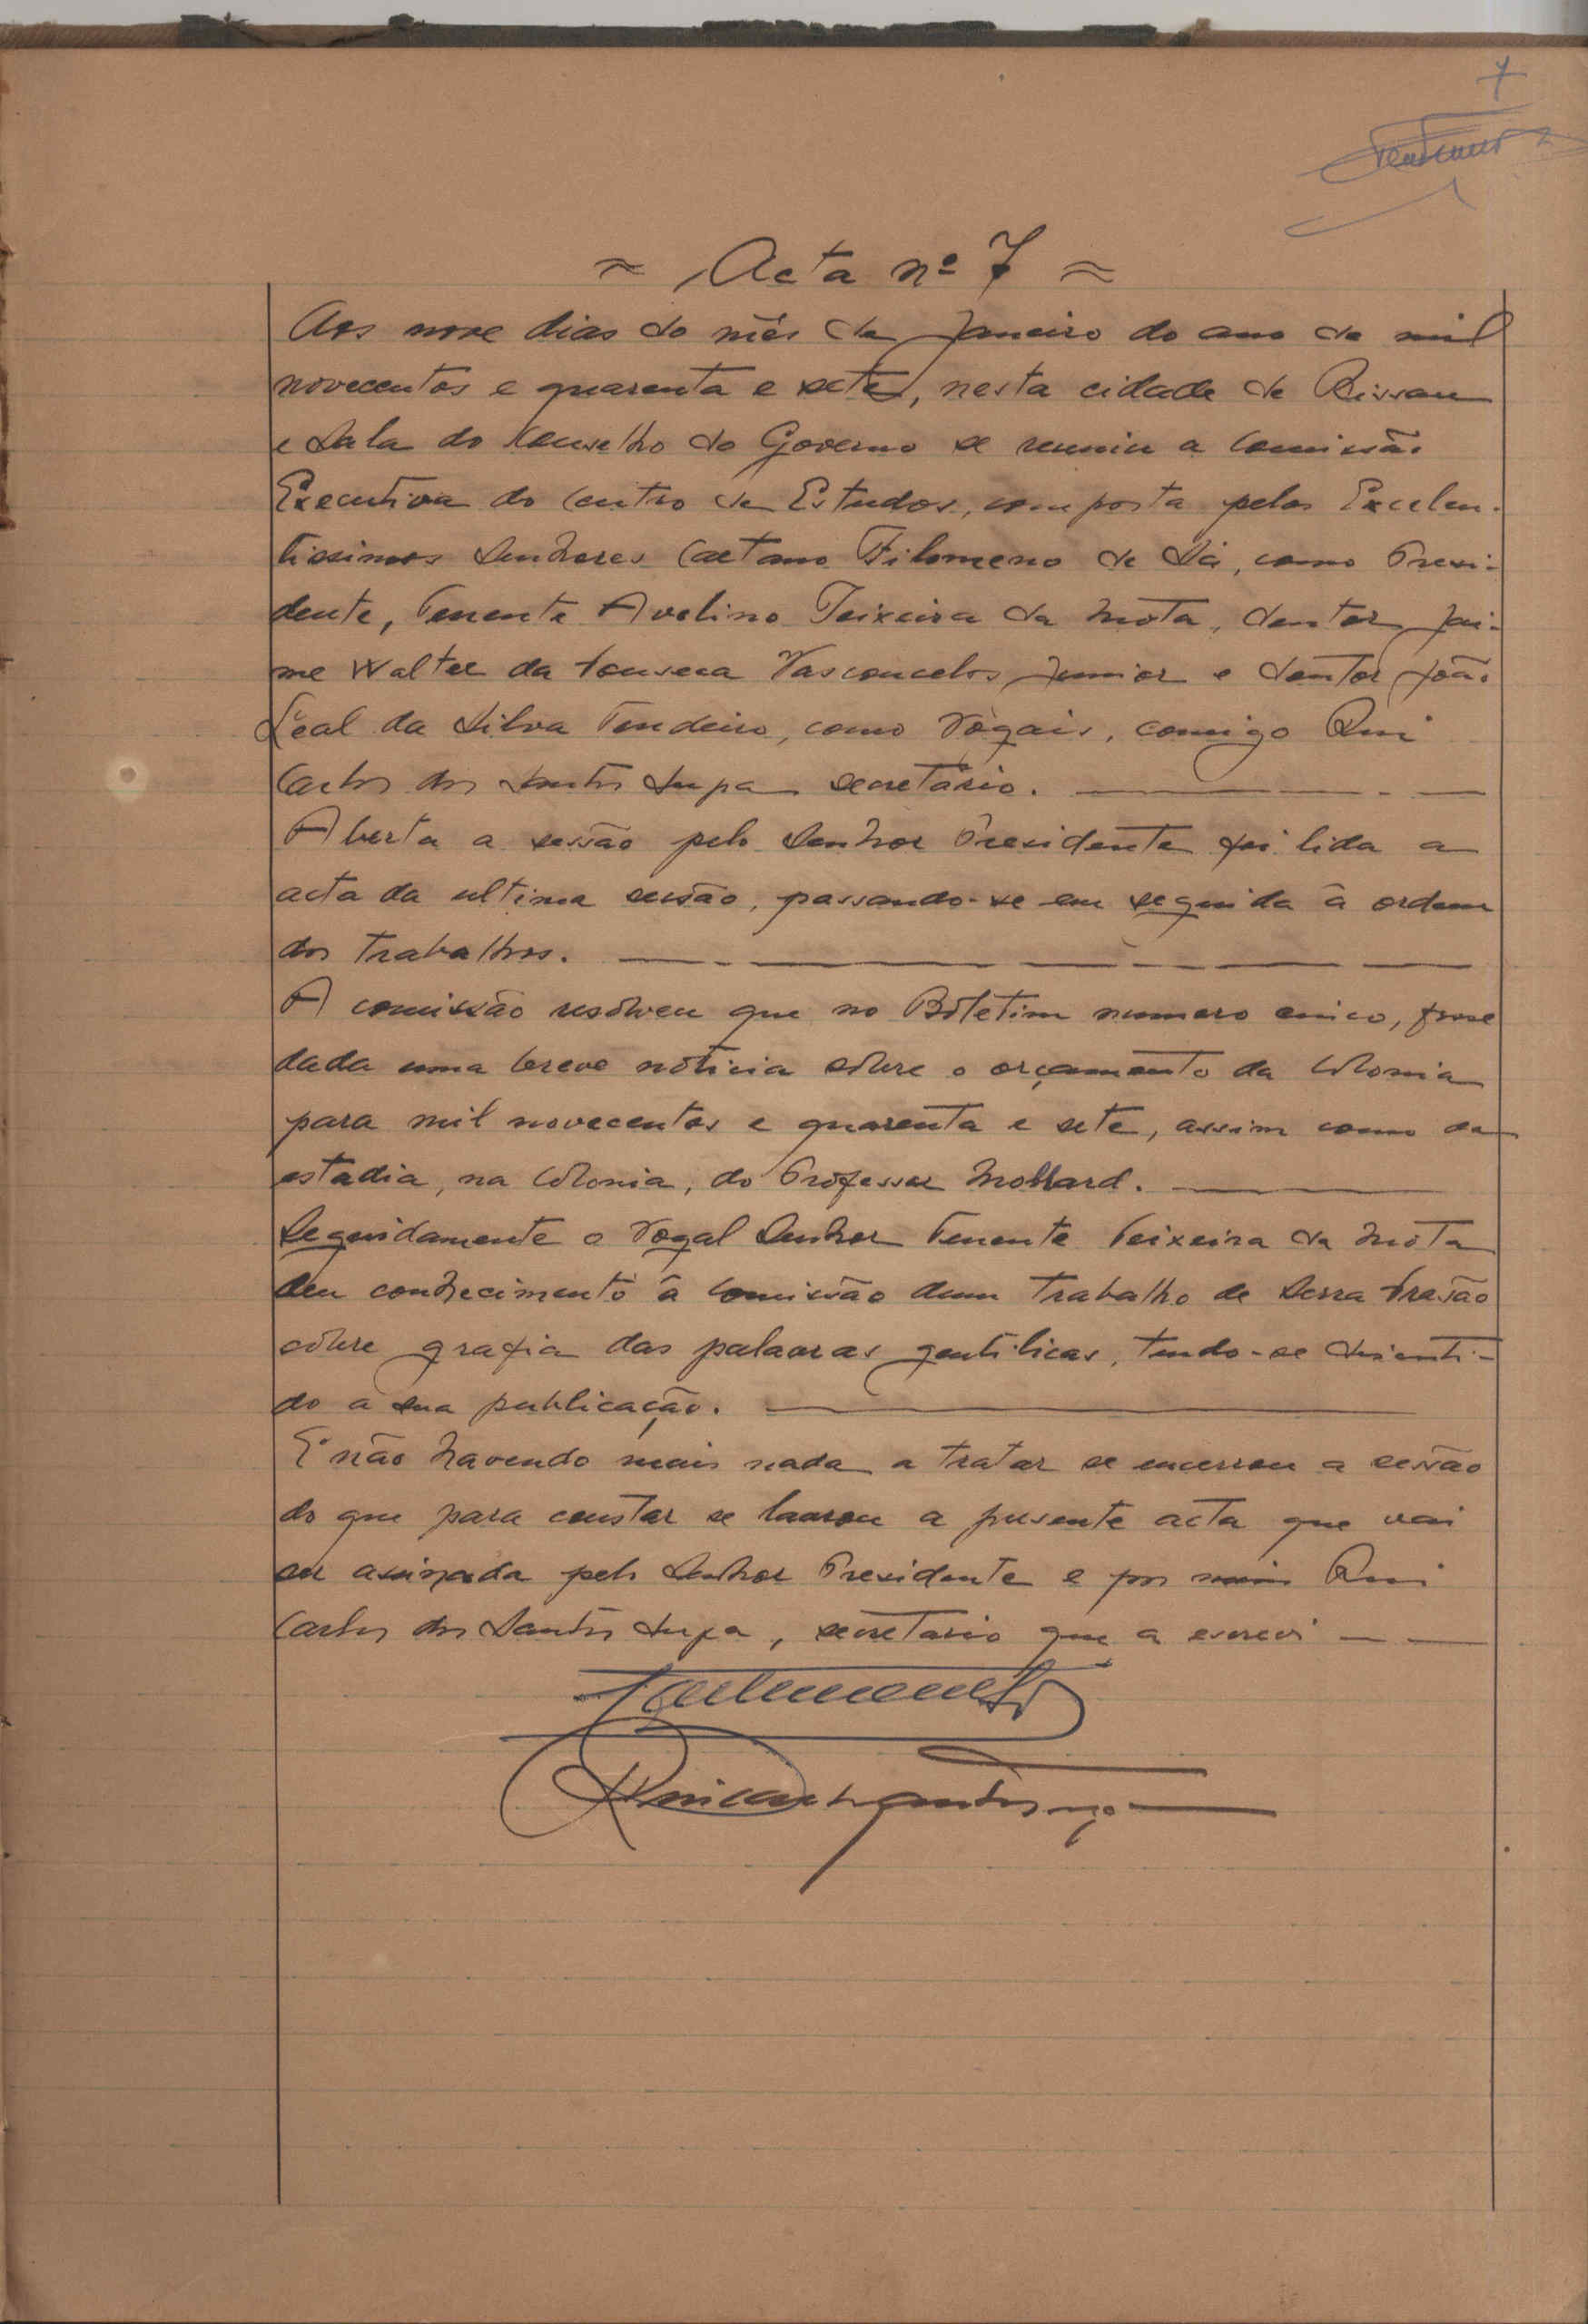 7
~ Acta nº 7 ~
Aos nove dias do mês de Janeiro do ano de mil
novecentos e quarenta e sete, nesta cidade de Bissau
e Sala do Conselho do Governo se reuniu a Comissão
Executiva do Centro de Estudos, composta pelos Excelen-
tissimos Senhores Caetano Filomeno de Sá, como Presi-
dente, Tenente Avelino Teixeira da Mota, doutor Jai-
me Walter da Fonseca Vasconcelos Junior e doutor João
Leal da Silva Tendeiro, como Vogais, comigo Rui
Carlos dos Santos Lupa secretário.
Aberta a sessão pelo Senhor Presidente foi lida a
acta da ultima sessão, passando-se em seguida à ordem
dos trabalhos.
A comissão resolveu que no Boletim numero cinco, fosse
dada uma breve noticia sobre o orçamento da Colonia
para mil novecentos e quarenta e sete, assim como da
estadia, na Colonia, do Professor Mollard.
Seguidamente o Vogal Senhor Tenente Teixeira da Mota
deu conhecimento à Comissão dum trabalho de Serra Frasão
sobre grafia das palavras gentilicas, tendo-se
do a sua publicação.
E não havendo mais nada a tratar se encerrou a sessão
do que para constar se lavrou a presente acta que vai
ser assinada pelo Senhor Presidente e por mim Rui
Carlos dos Santos Lupa, secretario que a escrevi